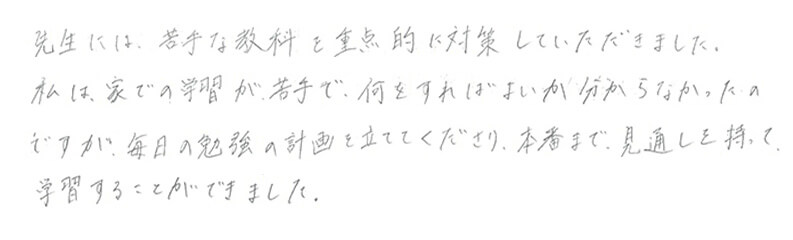 先生には、苦手な教科を重点的に対策していただきました。
私は、家での学習が苦手で、何をすればよいか分からなかったの
ですが、毎日の勉強の計画を立ててくださり、本番まで、見通しを持って、
学習することができました。